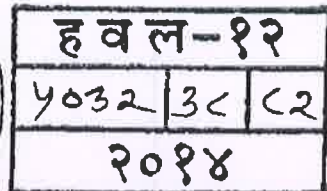 हवल-१२
५०३२ ३८ ८२
२०१४